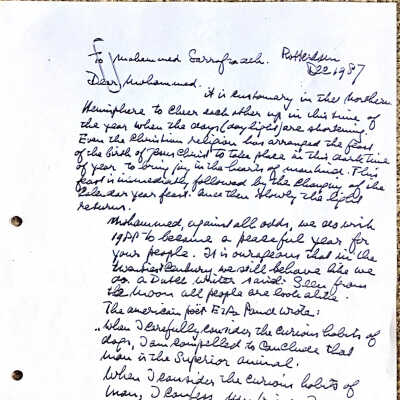 To Mohammed Sarrafzadeh. Rotterdam
Dec 1987
Dear Mohammed.
it is customary in the Northern
Hemisphere to cheer each other up in this time of
the year when the days (day light) are shortening.
Even the Christian religion has arranged the feast
of the birth of Jesus Christ to take place in this dark time
of year to bring joy in the hearts of mankind. This
feast is immediately followed by the change of the
Calendar year feast. And then slowly the light
returns.
Mohammed, against all odds, we do wish
1988 to become a peaceful year for
your people. It is outrageous that in the
twentiest Century we still behave like we
do. a Dutch writer said: Seen from
the Moon all people are look alike.
The american poet Ezra Pound wrote:
"When I carefully consider the curious habits of
dogs, I am compelled to conclude that
man is the superior animal.
When I consider the curious habits of
man, I confess, my friend, I